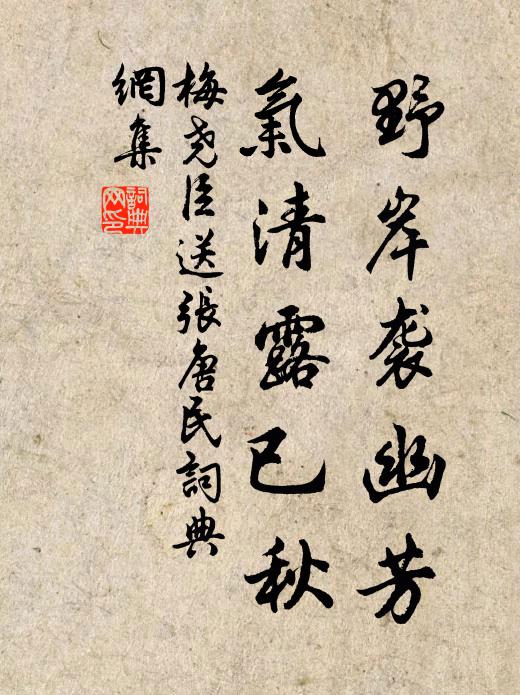 野岸袭幽芳
氣清露已秋
梅尧臣送張唐民詞典
網集
詞典网印